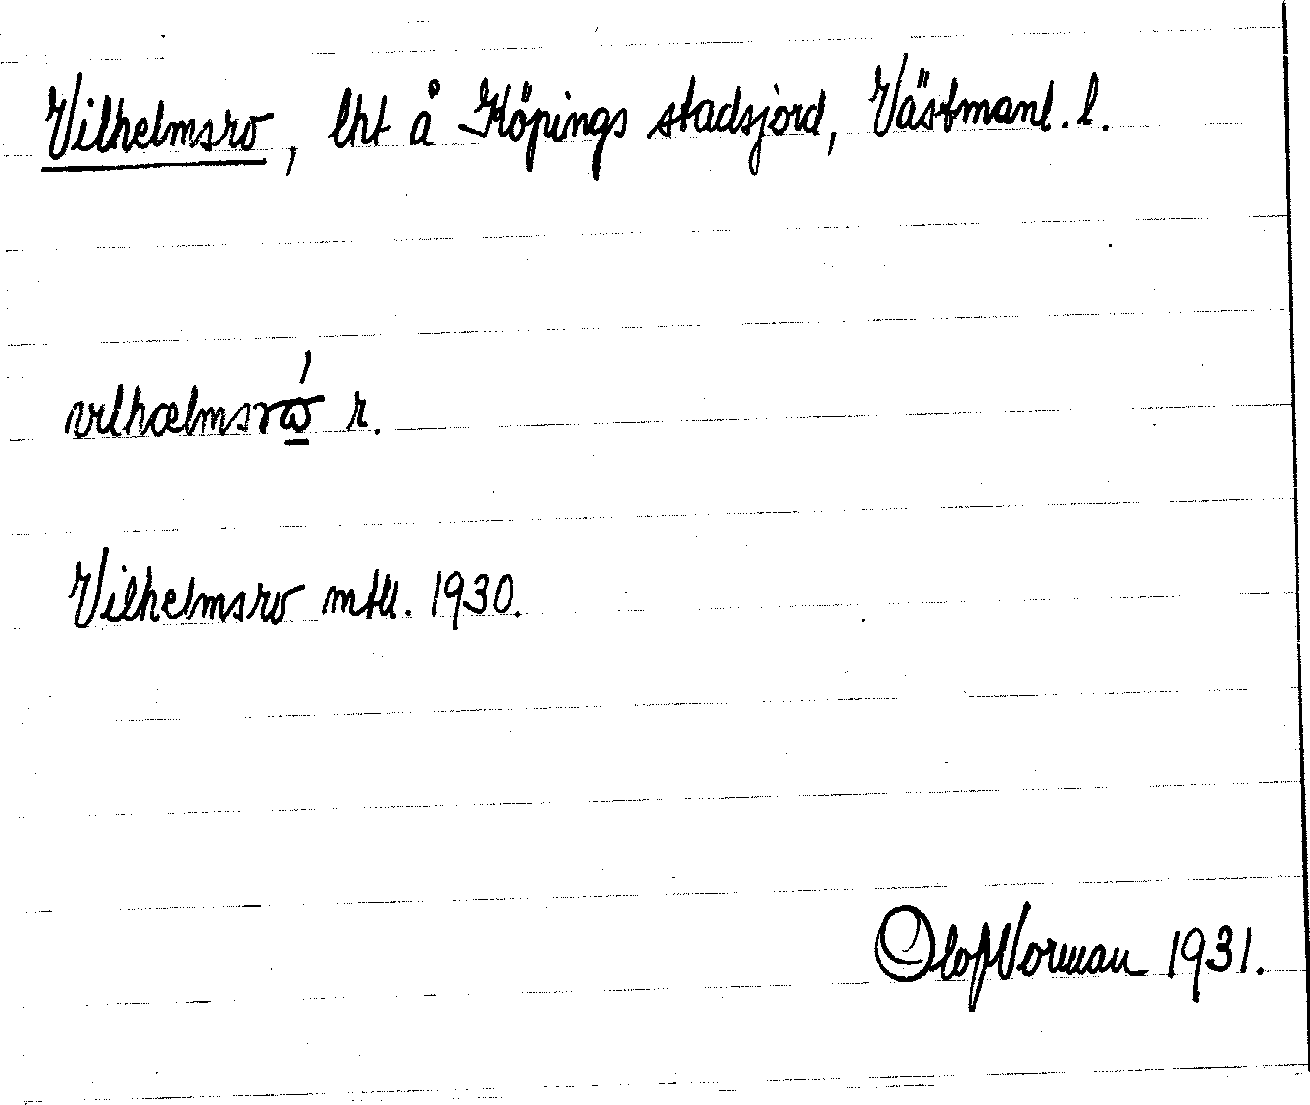 Vilhelmsro, lht å Köpings stadsjord, Västmanl. l.
vılhælmsrώ̱ r.
Vilhelmsro mtll. 1930.
Olof Norman 1931.